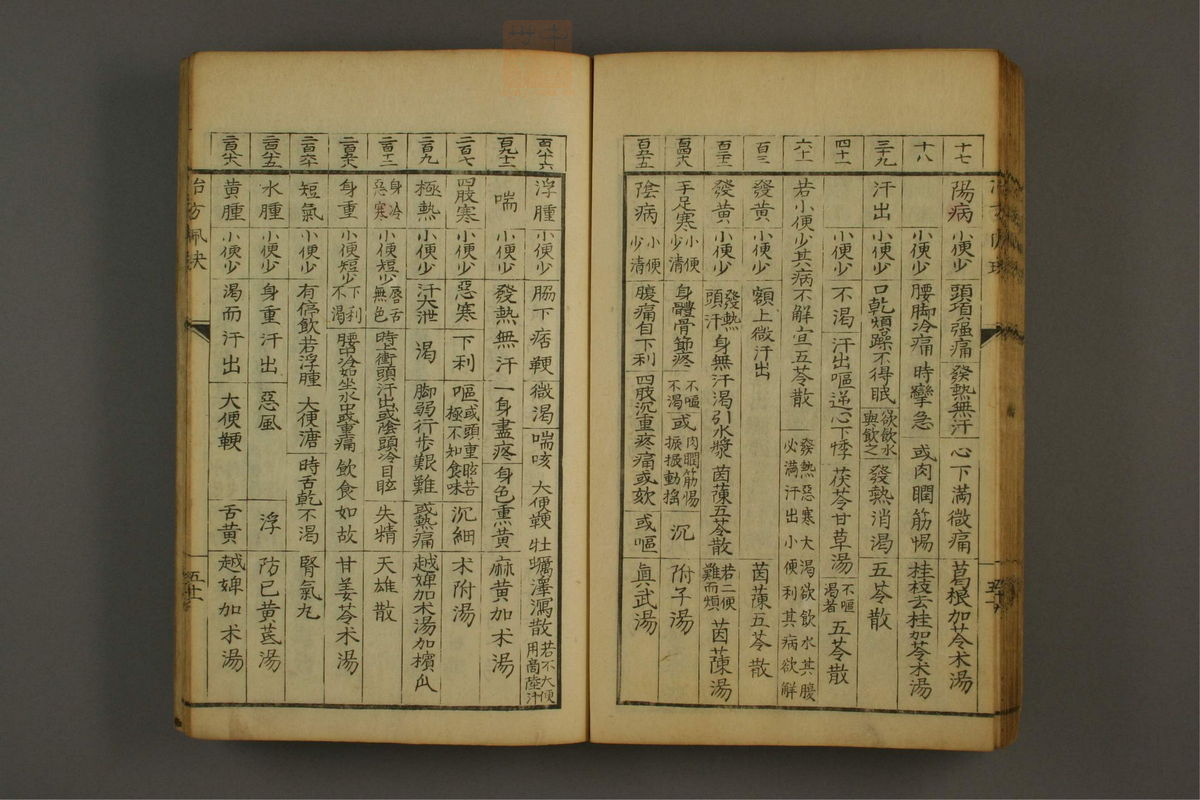 十七 陽病 小便少 頭項强痛 發熱無汗 心下満微痛 葛根加苓朮湯
十八 小便少 腰脚冷痛 時攣急 或肉瞤筋惕 桂枝去桂加苓朮湯
三十九 汗出 小便少 口乾煩躁不得眠 欲飲水與飲之 發熱消渴 五苓散
四十一 小便少 不渴 汗出嘔逆心下悸 茯苓甘草湯 不嘔渴者 五苓散
六十一 若小便少其病不解宜五苓散 發熱惡寒大渴欲飲水其腹必満汗出小便利其病欲解
百三 發黃 小便少 額上微汗出 茵蔯五苓散
發黃 小便少 發熱頭汗 身無汗渴引水漿 茵蔯五苓散 若二便難而煩 茵蔯湯
手足寒 小便少清 身體骨節疼 不嘔不渴 或 肉瞤筋惕振振動搖 沉 附子湯
陰病 小便少清 腹痛自下利 四肢沉重疼痛或欬 或嘔 眞武湯
浮腫 小便少 脇下痞鞕 微渴 喘咳 大便鞕 牡蠣澤瀉散 若不大便用商陸汁
喘 小便少 發熱無汗 一身盡疼 身色熏黃 麻黃加朮湯
二百七 四肢寒 小便少 惡寒 下利 嘔 或頭重眩苦極不知食味 沉細 朮附湯
二百九 極熱 小便少 汗大泄 渴 脚弱行步艱難 或熱痛 越婢加朮湯加檳
身冷惡寒 小便短少 唇舌無色 時上衝頭汗出或陰頭冷目眩 失精 天雄散
身重 小便短少 下利不渴 腰中冷如坐水中或重痛 飲食如故 甘姜苓朮湯
短氣 小便少 有停飲若浮腫 大便溏 時舌乾不渴 腎氣丸
水腫 小便少 身重汗出 惡風 浮 防已黃芪湯
黃腫 小便少 渴而汗出 大便鞕 舌黃 越婢加朮湯